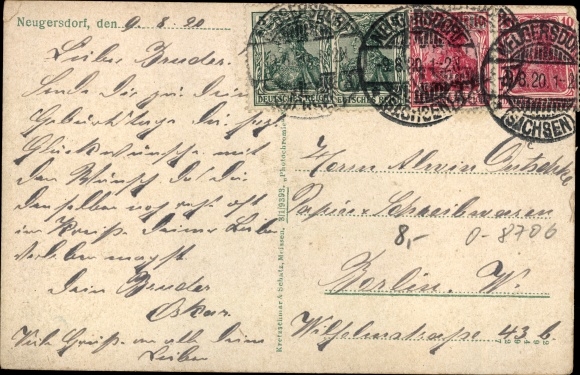 Neugersdorf, den 9. 8. 20
Lieber Bruder.
Sende Dir zu Deinem
Geburtstage die herzl.
Glückwünsche mit
dem Wunsch das Du
denselben noch recht oft
im Kreise Deiner Lieben
verleben magst.
Dein Bruder
Oskar.
Viele Grüße an alle Deine
Lieben
Kretzschmar & Schatz, Meissen. 3/1/9393. „Photochromie“
NEUGERSDORF
(SACHSEN)
9.8.20.1-2
DEUTSCHES REICH
DEUTSCHES REICH
10
NEUGERSDORF
9.8.20.1-2
(SACHSEN)
c
Herrn Alwin
Papier & Schreibwaren
8,- 0-8706
Berlin. W.
Wilhelmstraße 43 b